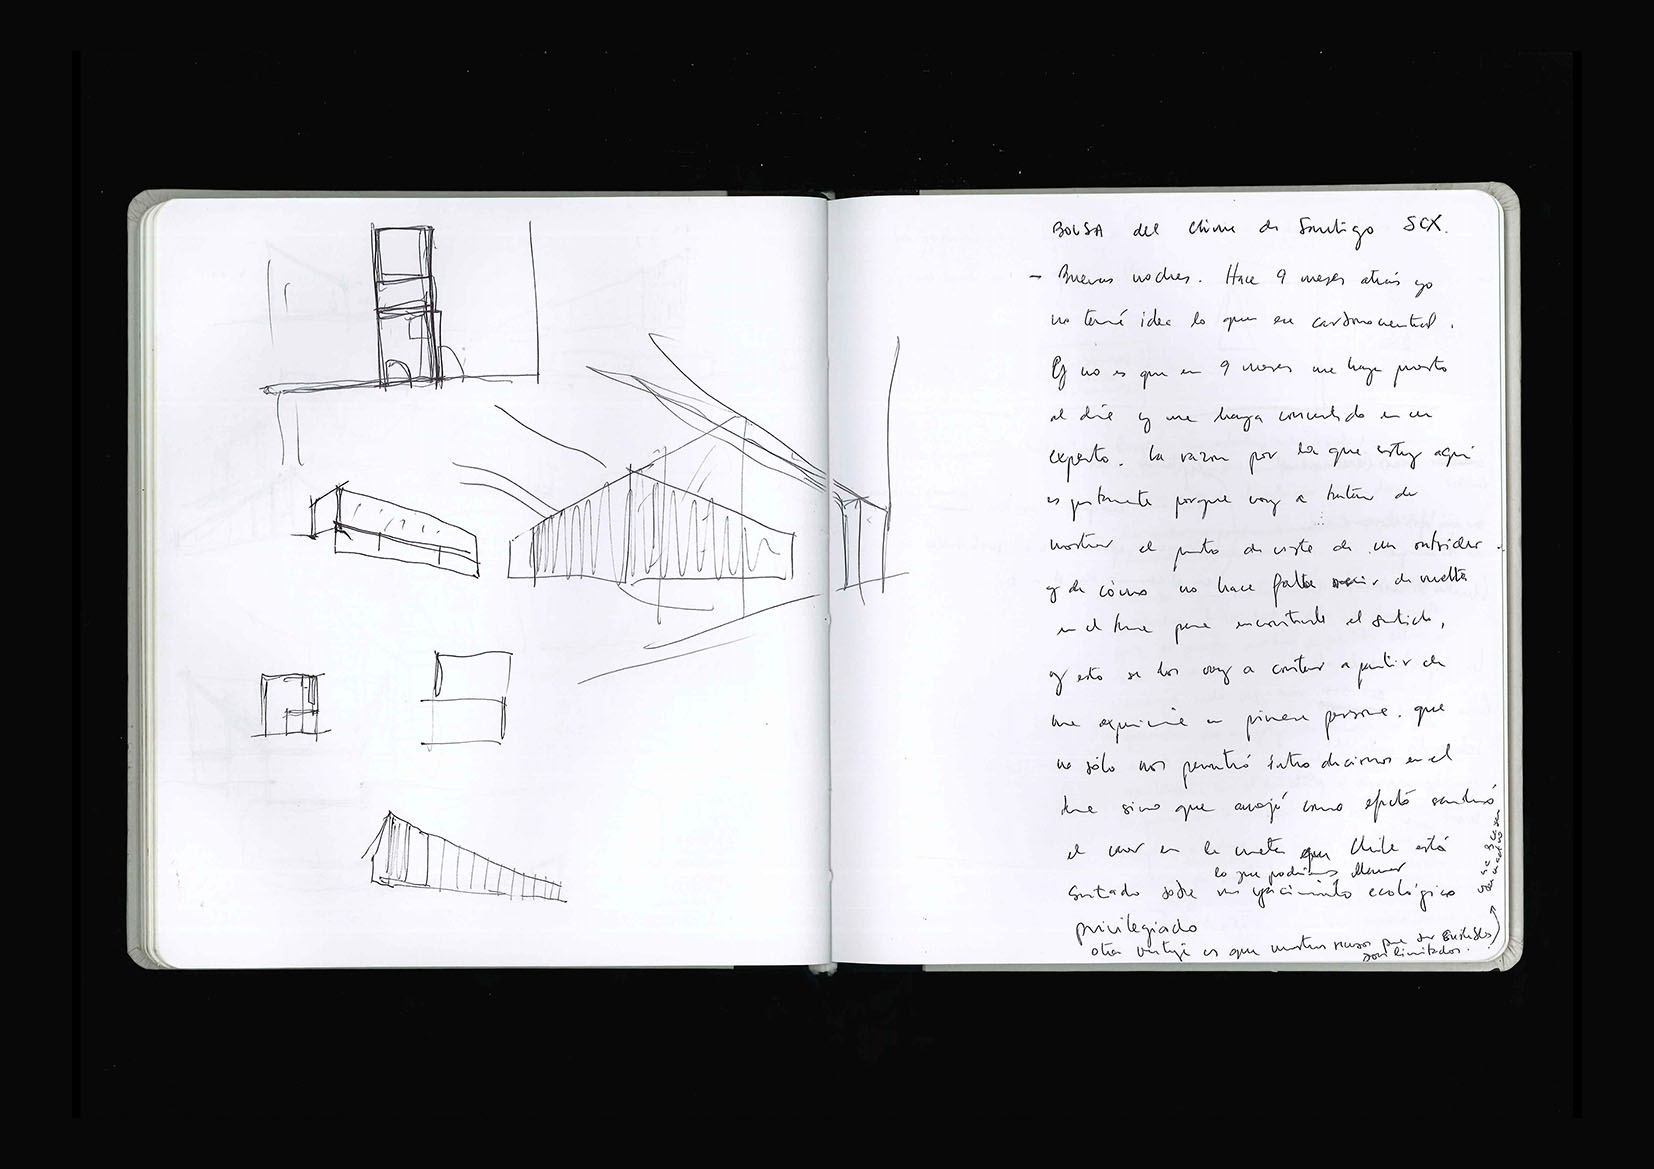 BOLSA del Clima de Santiago SCX.
- Buenas noches. Hace 9 meses atrás yo
no tenía idea lo que era carbononeutral.
Y no es que en 9 meses me haya puesto
al día y me haya convertido en un
experto. La razon por la que estoy aquí
es justamente porque voy a tratar de
mostrar el punto de vista de un outsider
y de cómo no hace falta venir de vuelta
en el tema para encontrarle el sentido,
y esto se los voy a contar a partir de
una experiencia en primera persona. que
no sólo nos permitió introducirnos en el
tema sino que arrojó como efecto
el en la que Chile está
lo que podríamos llamar
sentado sobre un yacimiento ecológico
privilegiado
otra ventaja es que nuestros por ser
son limitados.